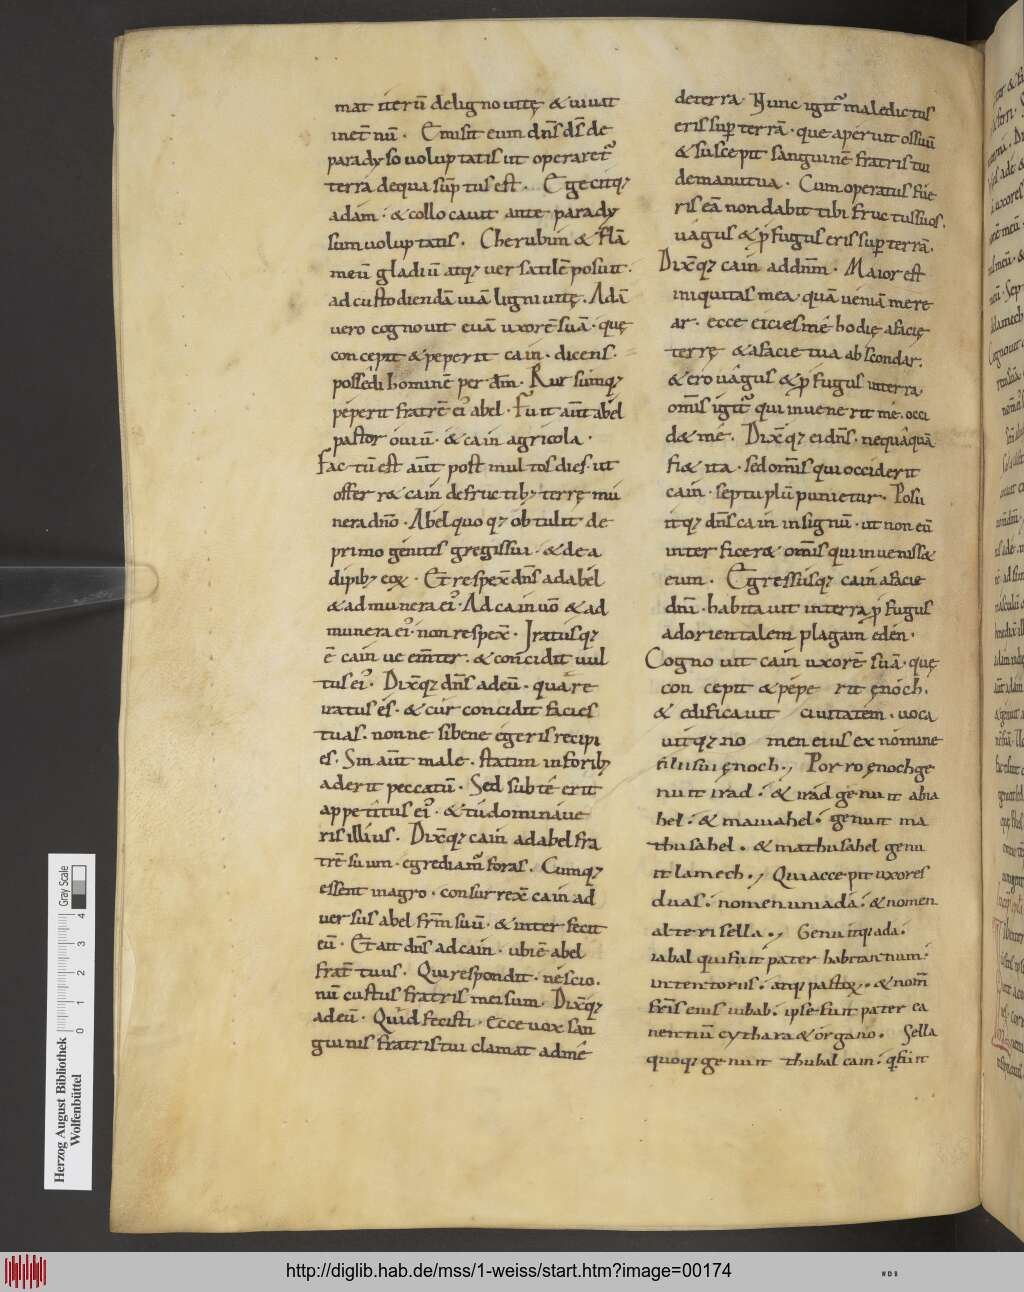 mat iterū deligno uitę & uiuat
inet̄nū . Emisit eum dn̄s ds̄ de
paradyso uoluptatis ut operaret᷑
terrā dequa sūptus est . Eiecitq;
adam . & collocauit ante parady
sum uoluptatis . Cherubim & flā
meū gladiū atq; uersatilē posuit .
ad custodiendā uiā ligni uitę . Adā
uero cognouit euā uxorē suā . quę
concepit & peperit cain . dicens .
possedi hominē per dm̄ . Rursūmq;
peperit fratrē ei᾽ abel . Fuit aūt abel
pastor ouiū . & cain agricola .
Factū est aūt post multos dies . ut
offerr& cain defructib; terrę mu
nera dn̄o . Abel quoq; obtulit de
primo genitis gregis sui . & de a
dipib; eoꝝ . Et respex̄ dn̄s ad abel
& ad munera ei᾽ . Ad cain uō & ad
munera ei᾽ . non respex̄ . Iratusq;
ē cain uem̄ter . & concidit uul
tus ei᾽ . Dixq; dn̄s ad eū . quare
iratus es . & cur concidit facies
tua . nonne si bene egeris recipi
es . Sin aūt male . statim in forib;
aderit peccatū . Sed sub te erit
appetitus ei᾽ . & tu domináue
ris illius . Dixq; cain ad abel fra
trē suum . egrediam᷑ foras . Cumq;
essent in agro . consurrex̄ cain ad
uersus abel fr̄m suū . & interfecit
eū . Et ait dn̄s ad cain . ubi ē abel
frat̄ tuus . Qui respondit . nescio .
nū custus fratris mei sum . Dixq;
ad eū . Quid fecisti . Ecce uox san
guinis fratris tui clamat ad me
de terra . Nunc igit᷑ maledictus
eris suꝑ terrā . que aperuit os suū
& suscepit sanguinē fratris tui
de manu tua . Cum operatus fue
ris eā non dabit tibi fructus suos .
uagus & ꝓfugus eris suꝑ terrā .
Dixq; cain ad dn̄m . Maior est
iniquitas mea . quā ueniā mere
ar . ecce eicies me hodię a facię
terrę & a facie tua abscondar .
& ero uagus & ꝓfugus in terra .
omīs igit᷑ qui inuenerit me . occi
d& me . Dixq; ei dn̄s . nequaquā
fi& ita . sed omīs qui occiderit
cain . septuplū punietur . Posu
itq; dn̄s cain in signū . ut non eū
interficer& omīs qui inueniss&
eum . Egressusq; cain a facie
dn̄i . habitauit in terra ꝓfugus
ad orientalem plagam eden .
Cognouit cain uxorē suā . quę
con cepit & pepe rit ęnoch .
& edificauit ciuitatem . uoca
uitq; no men eius ex nomine
filii sui ęnoch . , Porro ęnoch ge
nuit irad . & irad genuit abia
hel . & mauiahel . genuit ma
thusahel . & mathusahel genu
it lamech . , Qui accepit uxores
duas . nomen uni ada . & nomen
alteri sella . , Genuitq; ada .
iabal qui fuit pater habitantium .
in tentoriis . atq; pastoꝝ . & nom̄
fr̄is eius iubab . ipse fuit pater ca
nentiū cythara & organo . Sella
quoq; genuit thubal cain . q fuit
Gray Scale
0 1 2 3 4
Herzog August Bibliothek
Wolfenbüttel
http://diglib.hab.de/mss/1-weiss/start.htm?image=00174